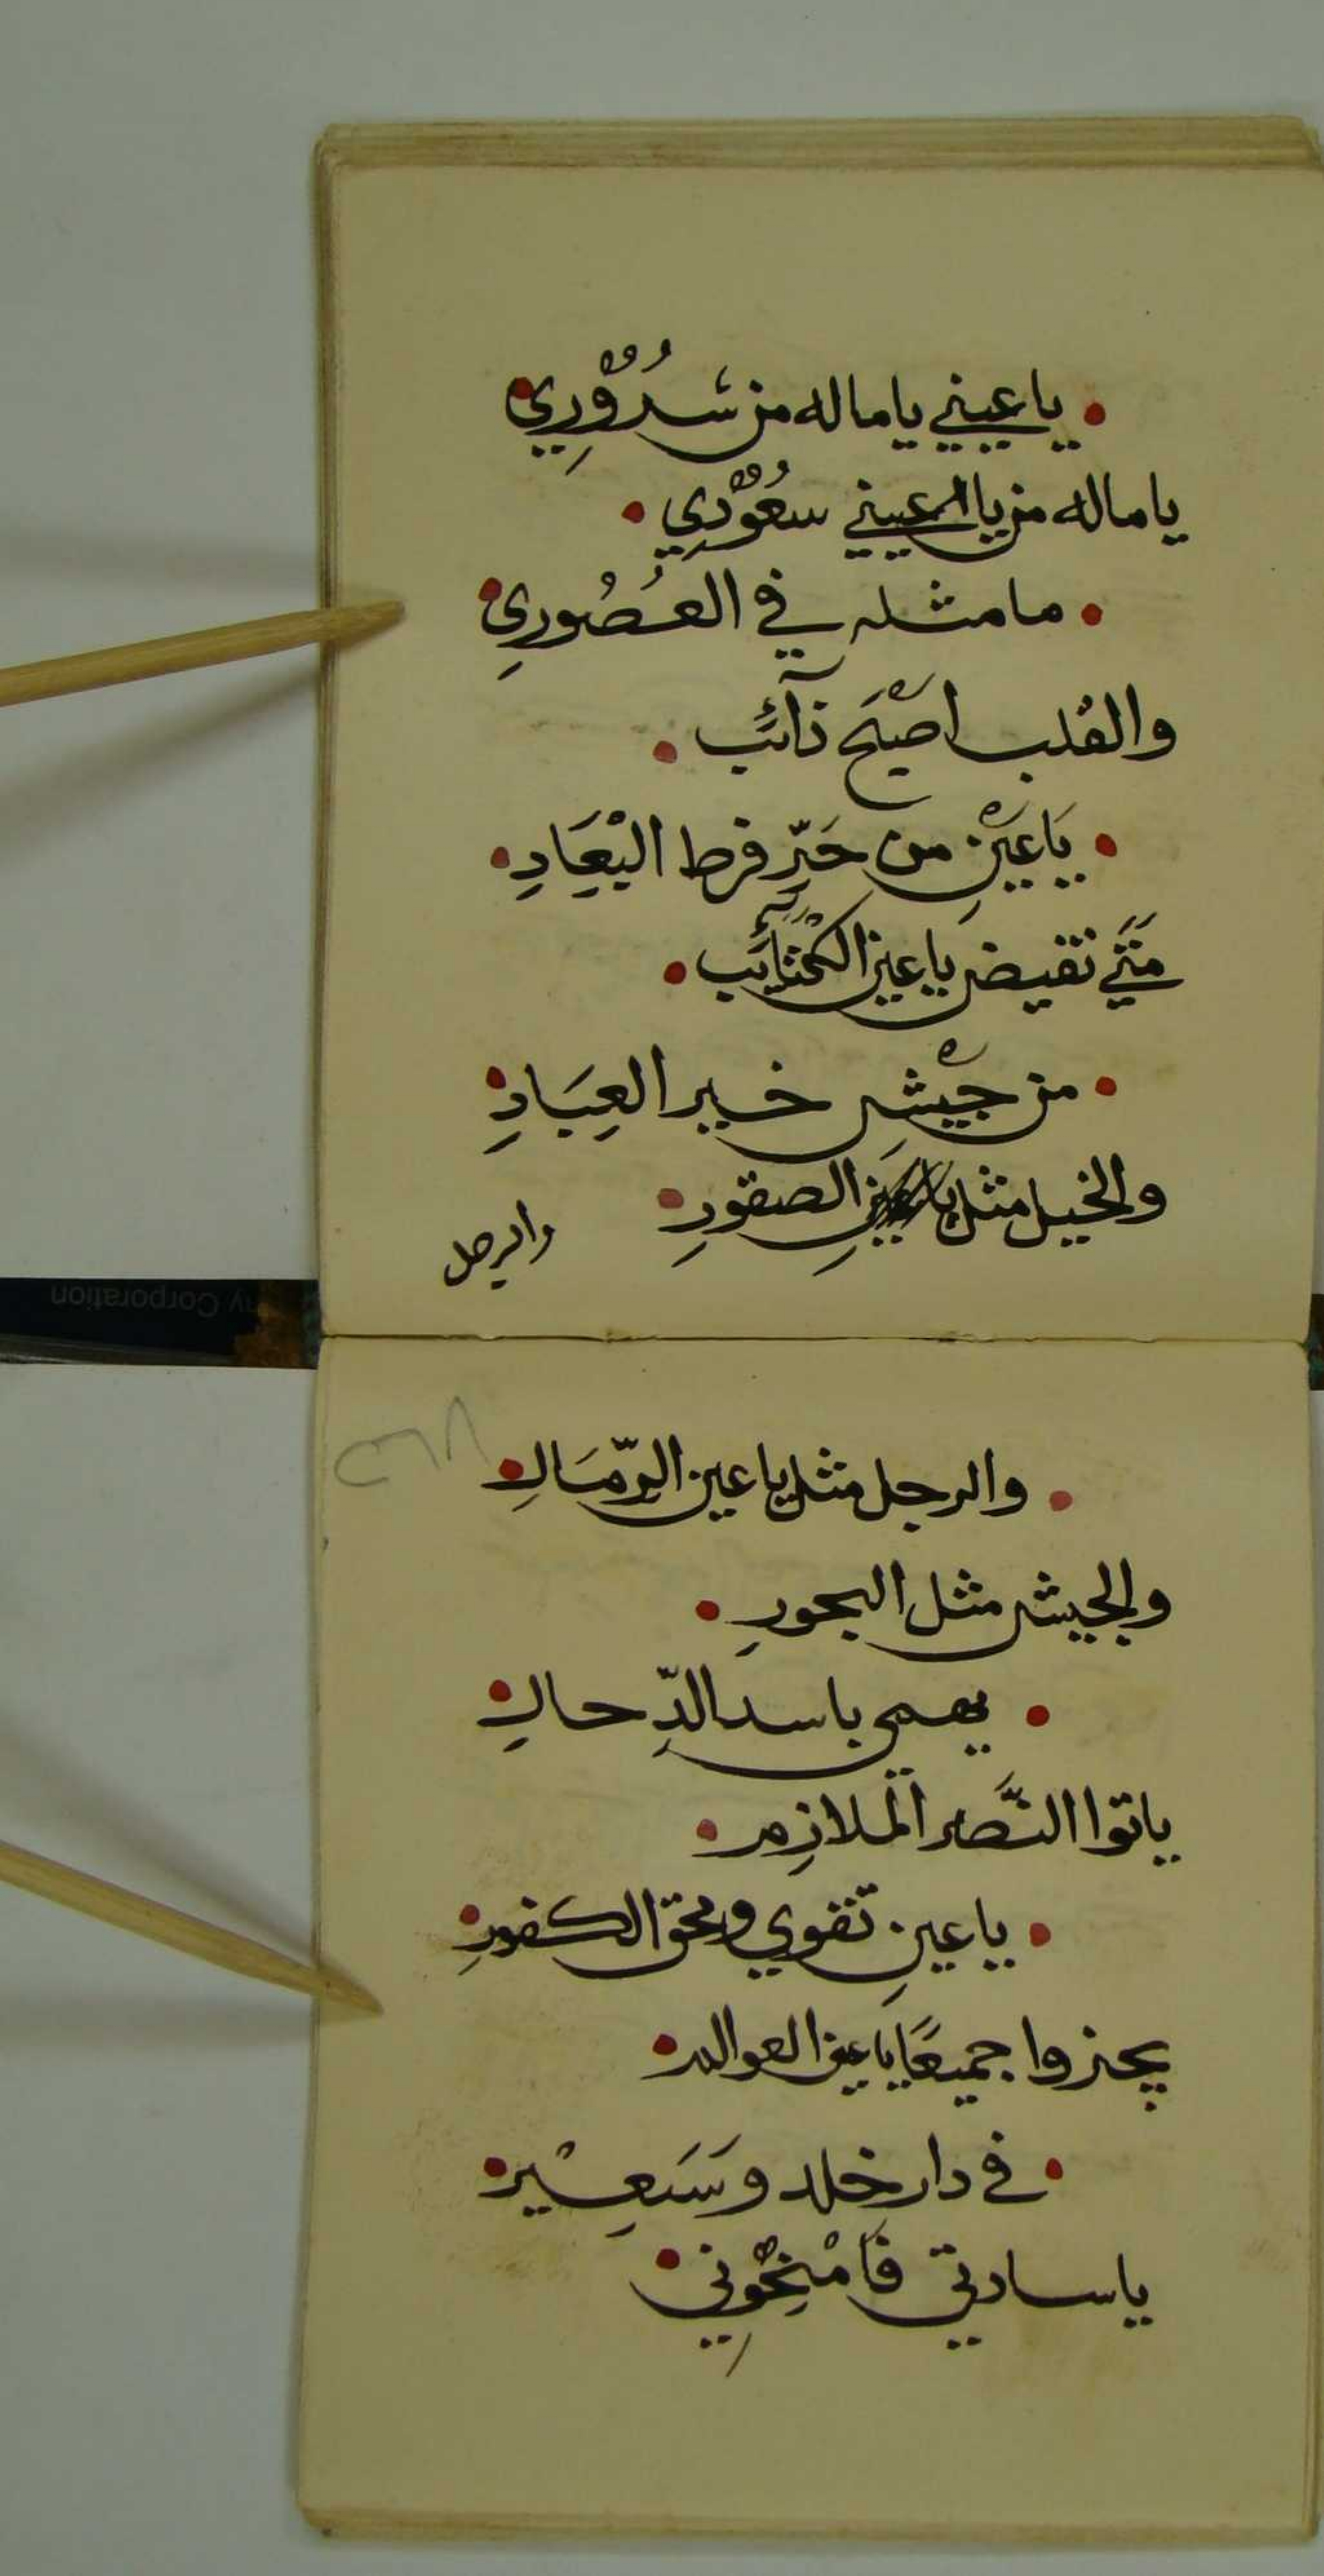 ياعيني ياماله من سُرُوْرِي
ياماله من ياعيني سعُوْدِي
مامثله في العُصُورِي
والقلب اصْبَح ذآئَب
يَاعَيْنِ من حَرِّ فرط البْعَادِ
مَتَي تقيض ياعين الكتائَب
من جَيْشِ خير العِبَادِ
والخيل مثل ياعين الصقورِ
والرجل
والرجل مثل ياعين الرّمَالِ
والجيش مثل البحورِ
يهمي باسد الدِّحالِ
ياتوا النَّصر الملازِم
ياعينِ تقوي ومحق الكفورِ
يجزوا جميعًا ياعين العوالم
في دار خلد وسَعِيْر
ياسادتي فَامْنِحُوْنِي